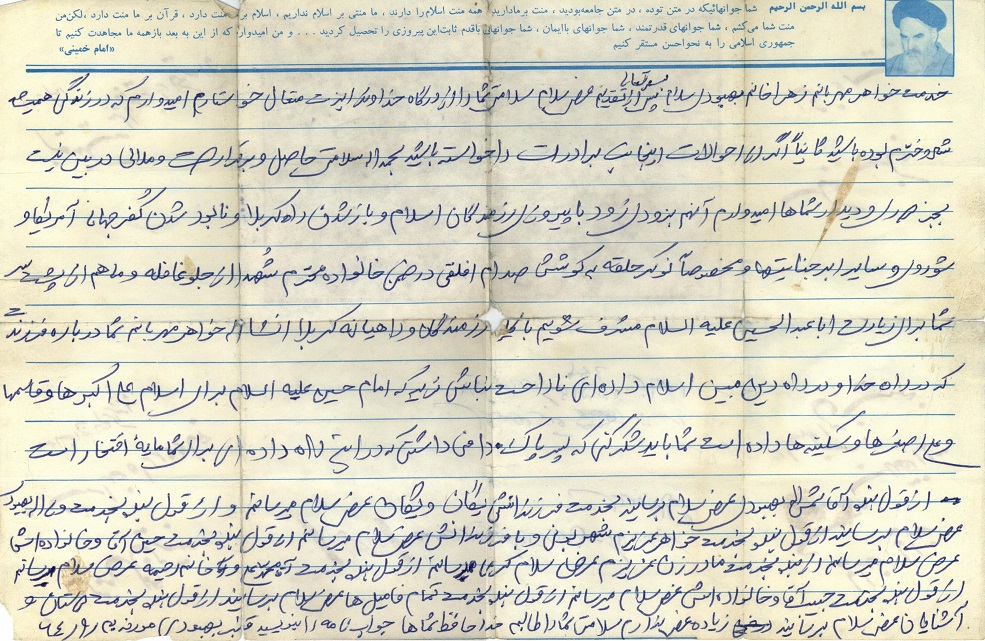 بسم الله الرحمن الرحیم شما جوانهائیکه در متن توده ، در متن جامعه بودید ، منت بر ما دارید همه منت اسلام را دارند ، ما منتی بر اسلام نداریم ، اسلام بر ما منت دارد ، قرآن بر ما منت دارد ، لکن من
منت شما می‌کشم ، شما جوانهای قدرتمند ، شما جوانهای باایمان ، شما جوانهای باقدم ثابت این پیروزی را تحصیل کردید ... و من امیدوارم که از این به بعد باز همه ما مجاهدت کنیم تا
جمهوری اسلامی را به نحو احسن مستقر کنیم
«امام خمینی»
بسمه تعالی
خدمت خواهر مهربانم زهرا خانم بهبودی سلام پس از تقدیم عرض سلام سلامتی شما را از درگاه خداوند ایزد متعال خواستارم امیدوارم که در زندگی همیشه
خوش و خرم بوده باشید ثانیاً اگر از احوالات اینجانب برادرت را خواسته باشید بحمداله سلامتی حاصل و برقرار است و ملالی در بین نیست
بجز دوری دیدار شماها امیدوارم آنهم بزودی زود با پیروزی رزمندگان اسلام و باز شدن راه کربلا و نابود شدن کفر جهانی آمریکا و
شوروی و سایر ابرجنایتها و مخصوصاً نوکر حلقه به گوشش صدام افلقی در ضمن خانواده محترم شهدا از جلو قافله و ما هم از پشت سر
شما برای زیارت اباعبدالحسین علیه السلام مشرف شویم با رزمندگان و راهیانه کربلا انشااله خواهر مهربانم شما درباره فرزندت
که در راه خدا و در راه دین مبین اسلام داده‌ای ناراحت نباشی زیرکه امام حسین علیه السلام برای اسلام علی اکبرها و قاسمها
و علی اصغرها و سکینه‌ها داده است شما باید شکر کنی که پسر پاک داشتی که در این راه داده‌ای برای شما مایهٔ افتخار است
از قول بنده آقا بهبودی عرض سلام برسانید بخدمت فرزندانش یگان و یگان عرض سلام میرسانم و از قول بنده بخدمت بهبودی
عرض سلام برسانید از قول بنده بخدمت خواهر عزیزم و با فرزندانش عرض سلام میرسانم از قول بنده بخدمت حسن آقا و خانواده‌اش
عرض سلام میرسانم از قول بنده بخدمت مادرزن عزیزم عرض سلام میرسانم از قول بنده بخدمت و خانم رحیمه عرض سلام میرسانم
از قول بنده بخدمت حبیب آقا و خانواده‌اش عرض سلام میرسانم از قول بنده بخدمت تمام فامیل‌ها عرض سلام برسانید از قول بنده بخدمت دوستان و
آشنایان عرض سلام برسانید زیاده عرض ندارم سلامتی شما را طالبم خدا حافظ شماها جواب نامه را بنویسید بهبودی